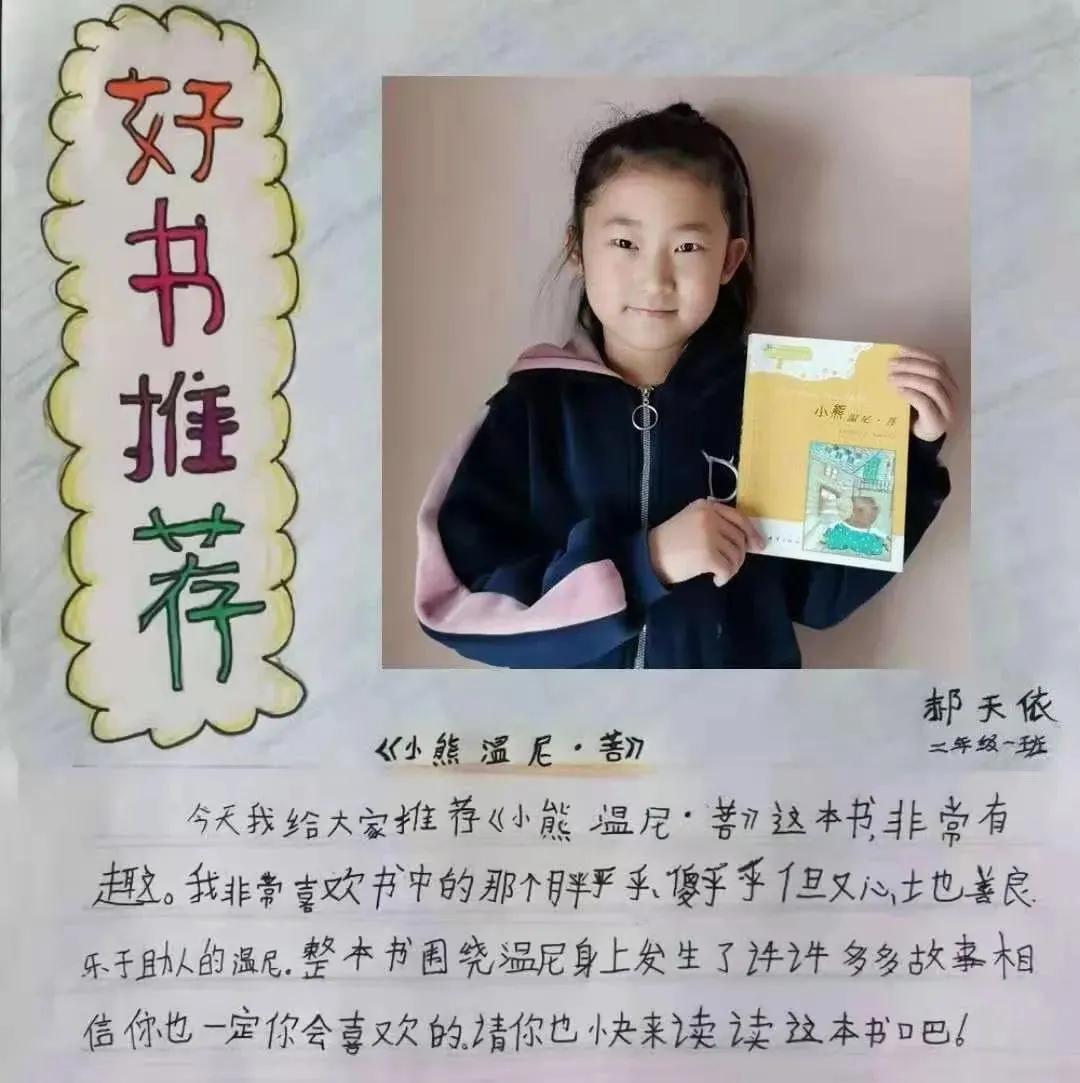 好书推荐
小熊温尼·菩
郝天依
二年级一班
《小熊温尼·菩》
今天我给大家推荐《小熊温尼·菩》这本书,非常有
趣。我非常喜欢书中的那个胖乎乎、傻乎乎但又心土也善良
乐于助人的温尼.整本书围绕温尼身上发生了许许多多故事相
信你也一定你会喜欢的。请你也快来读读这本书吧!